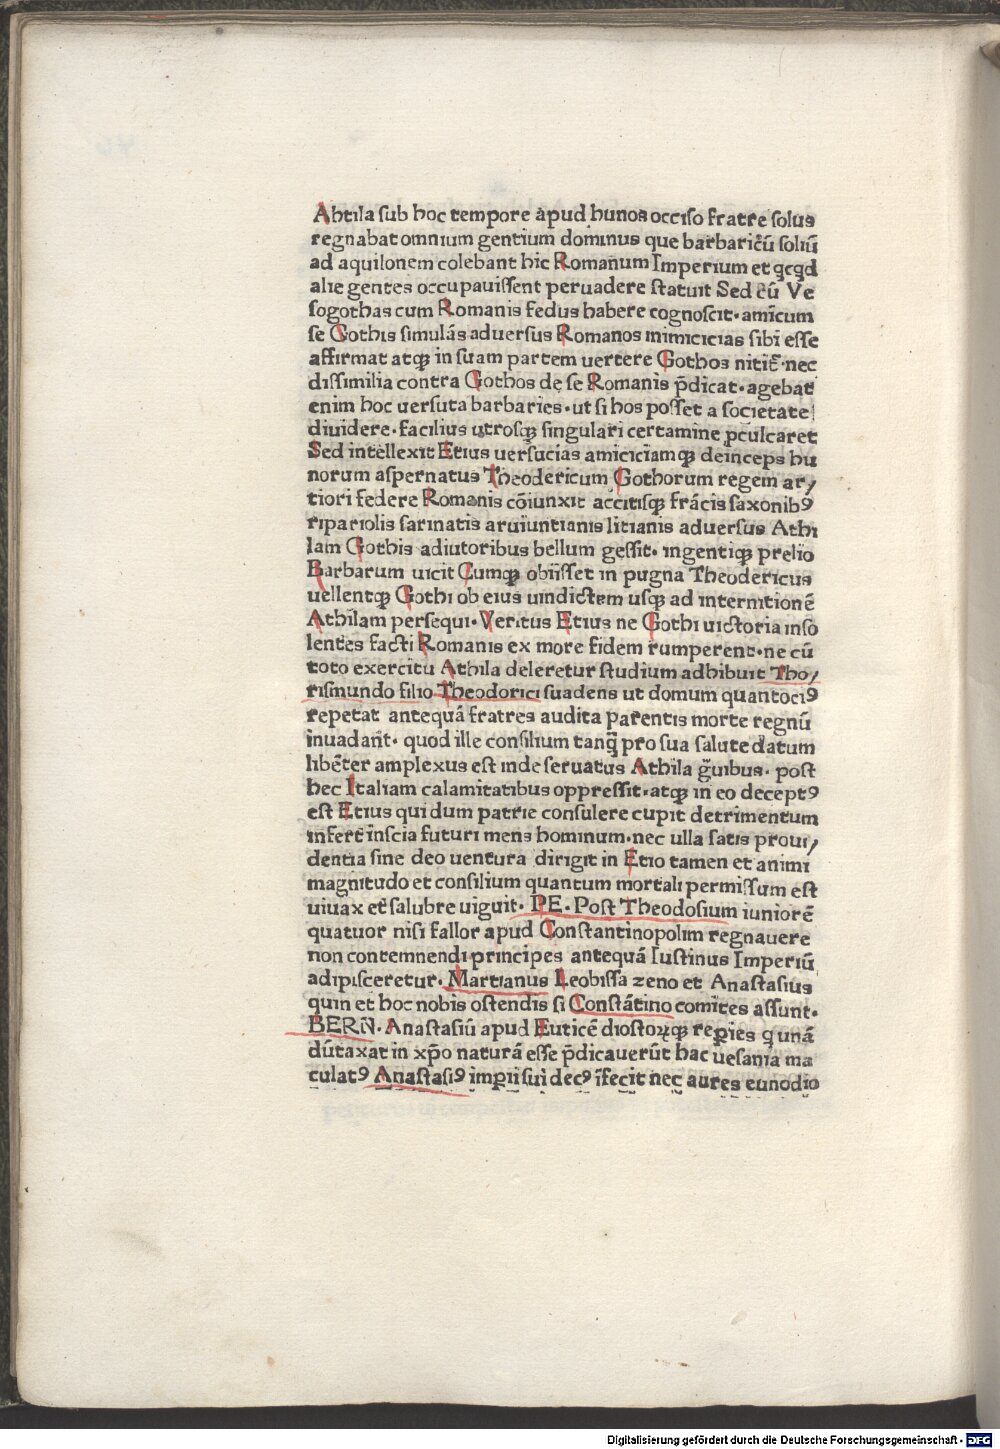 Ahtila sub hoc tempore apud hunos occiso fratre solus
regnabat omnium gentium dominus que barbaricū soliū
ad aquilonem colebant hic Romanum Imperium et qcqd
alie gentes occupauissent peruadere statuit Sed cū Ve
sogothas cum Romanis fedus habere cognoscit. amicum
se Gothis simulās aduersus Romanos inimicicias sibi esse
affirmat atqꝫ in suam partem uertere Gothos nitit̄. nec
dissimilia contra Gothos de se Romanis p̄dicat. agebat
enim hoc uersuta barbaries. ut si hos posset a societate
diuidere. facilius utrosqꝫ singulari certamine ꝓculcaret
Sed intellexit Etius uersucias amiciciamqꝫ deinceps hu
norum aspernatus Theodericum Gothorum regem ar/
tiori federe Romanis cōiunxit accitisqꝫ frācis saxonibꝰ
ripariolis sarinatis aruiuntianis litianis aduersus Athi
lam Gothis adiutoribus bellum gessit. ingentiqꝫ prelio
Barbarum uicit Cumqꝫ obiisset in pugna Theodericus
uellentqꝫ Gothi ob eius uindictem usqꝫ ad internitionē
Athilam persequi. Veritus Etius ne Gothi uictoria inso
lentes facti Romanis ex more fidem rumperent. ne cū
toto exercitu Athila deleretur studium adhibuit Tho/
rismundo filio Theodorici suadens ut domum quantociꝰ
repetat antequā fratres audita parentis morte regnū
inuadant. quod ille consilium tanq̄ pro sua salute datum
libēter amplexus est inde seruatus Athila g̃uibus. post
hec Italiam calamitatibus oppressit. atqꝫ in eo deceptꝰ
est Etius qui dum patrie consulere cupit detrimentum
infert inscia futuri mens hominum. nec ulla satis proui/
dentia sine deo uentura dirigit in Etio tamen et animi
magnitudo et consilium quantum mortali permissum est
uiuax et salubre uiguit. PE. Post Theodosium iuniorē
quatuor nisi fallor apud Constantinopolim regnauere
non contemnendi principes antequā Iustinus Imperiū
adipisceretur. Martianus Leobissa zeno et Anastasius
quin et hoc nobis ostendis si Constātino comites assunt.
BERN̄. Anastasiū apud Euticē diostoꝝqꝫ reꝑies q unā
dūtaxat in xp̄o naturā esse p̄dicauerūt hac uesania ma
culatꝰ Anastasiꝰ imꝑii sui decꝰ īfecit nec aures eunodio
Digitalisierung gefördert durch die Deutsche Forschungsgemeinschaft - DFG